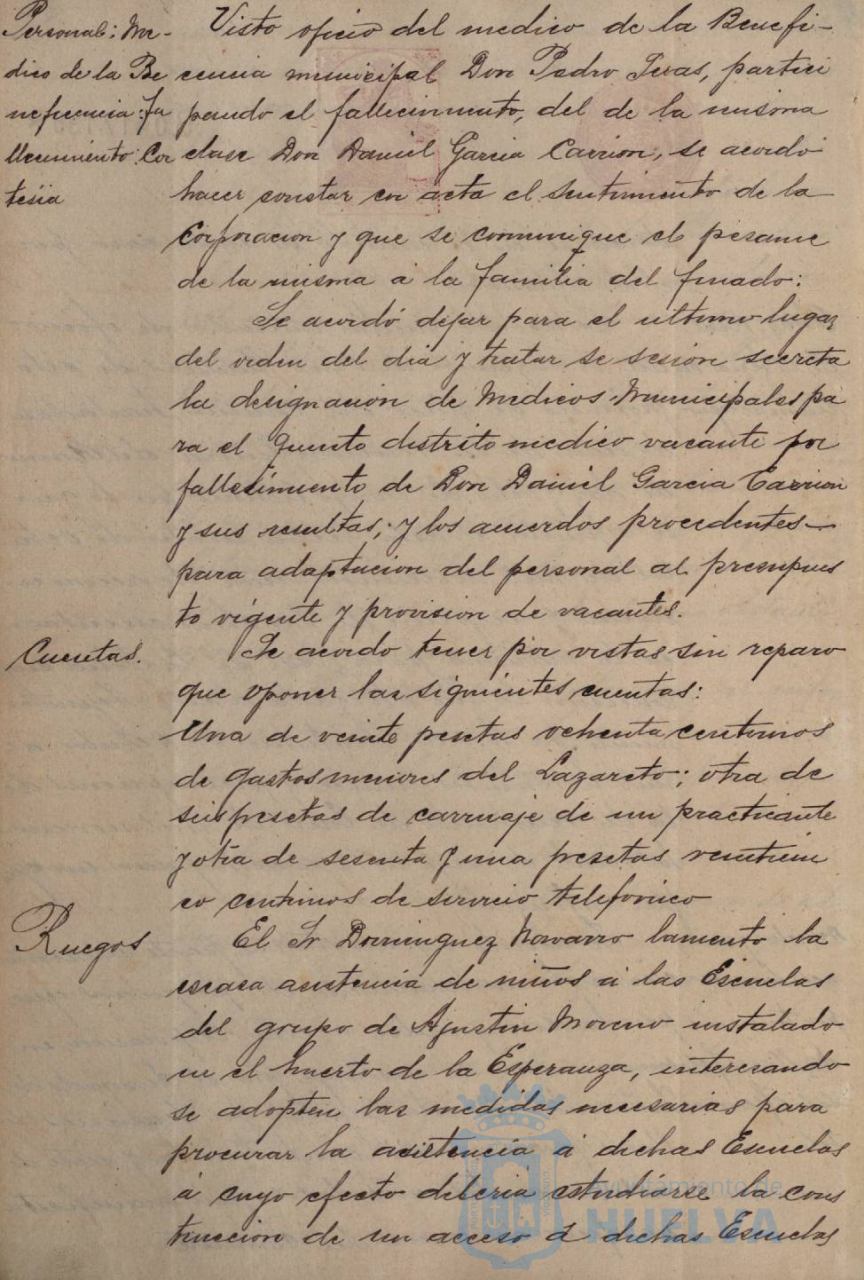 Personal: Me-
dico de la Be
neficencia: fa
llecimiento: Cor
tesia
Visto oficio del medico de la Benefi-
cencia municipal Don Pedro Seras, partici
pando el fallecimiento, del de la misma
clase Don Daniel Garcia Carrion, se acordó
hacer constar en acta el sentimiento de la
Corporacion y que se comunique el pesame
de la misma á la familia del finado:
Se acordó dejar para el ultimo lugar
del orden del dia y tratar se sesión secreta
la designación de Medicos Municipales pa
ra el quinto distrito medico vacante por
fallecimiento de Don Daniel Garcia Carrion
y sus resultas; y los acuerdos procedentes
para adaptacion del personal al presupues
to vigente y provision de vacantes.
Cuentas.
Se acordo tener por vistas sin reparo
que oponer las siguientes cuentas:
Una de veinte pesetas ochenta centimos
de gastos menores del Lazareto; otra de
seis pesetas de carruaje de un practicante
y otra de sesenta y una pesetas veinticin
co centimos de servicio telefonico
Ruegos
El Sr Dominguez Navarro lamento la
escasa asistencia de niños á las Escuelas
del grupo de Agustin Moreno instalado
en el huerto de la Esperanza, interesando
se adopten las medidas necesarias para
procurar la asistencia á dichas Escuelas
á cuyo efecto deberia estudiarse la cons
truccion de un acceso á dichas Escuelas
Ayuntamiento de
HUELVA